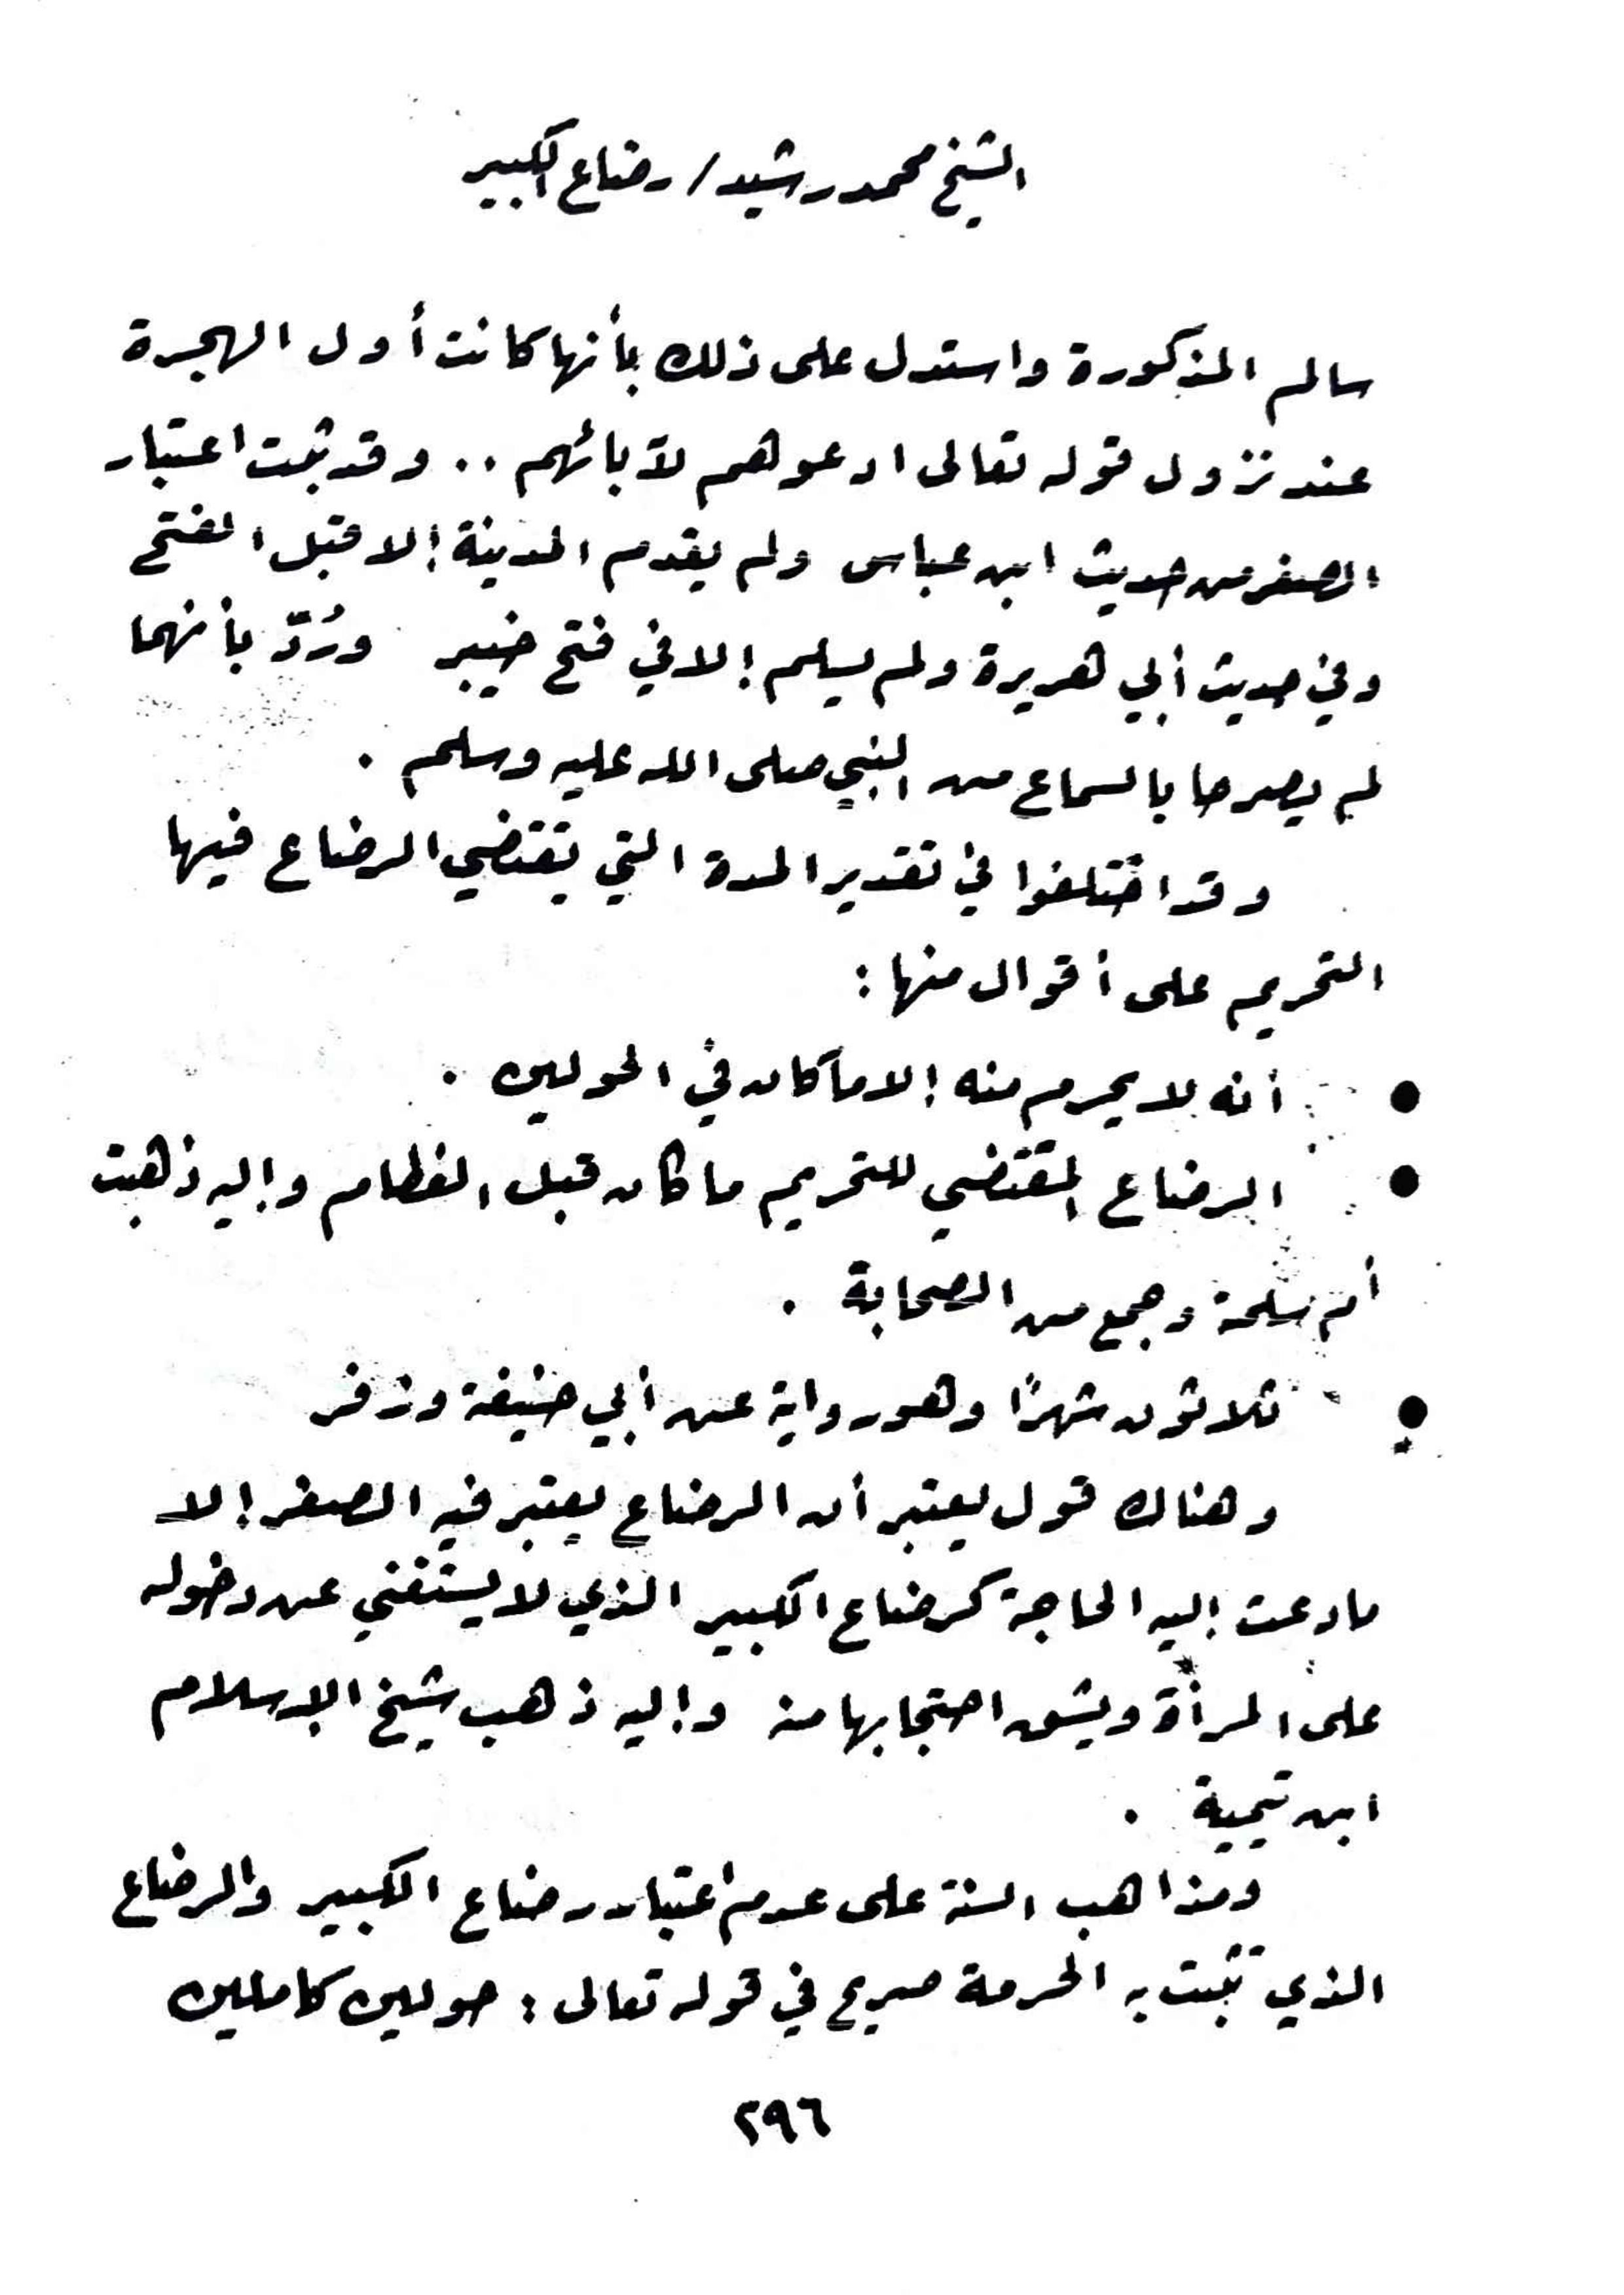 الشيخ محمد رشيد / رضاع الكبير
سالم المذكورة واستدل على ذلك بأنها كانت أول الهجرة
عند نزول قوله تعالى ادعوهم لآبائهم .. وقد ثبت اعتبار
الصغر من حديث ابن عباس ولم يقدم المدينة إلا قبل الفتح
وفي حديث أبي هريرة ولم يسلم إلا في فتح خيبر ورُدّ بأنهما
لم يصرحا بالسماع من النبي صلى الله عليه وسلم .
وقد اختلفوا في تقدير المدة التي يقتضي الرضاع فيها
التحريم على أقوال منها :
● أنه لا يحرم منه إلا ما كان في الحولين .
● الرضاع المقتضي للتحريم ما كان قبل الفطام وإليه ذهبت
أم سلمة وجمع من الصحابة .
● ثلاثون شهرًا وهو رواية عن أبي حنيفة وزفر
وهناك قول يعتبر أن الرضاع يعتبر فيه الصغر إلا
ما دعت إليه الحاجة كرضاع الكبير الذي لا يستغني عن دخوله
على المرأة ويشق احتجابها منه وإليه ذهب شيخ الإسلام
ابن تيمية .
ومذاهب السنة على عدم اعتبار رضاع الكبير والرضاع
الذي تثبت به الحرمة صريح في قوله تعالى : حولين كاملين
٢٩٦